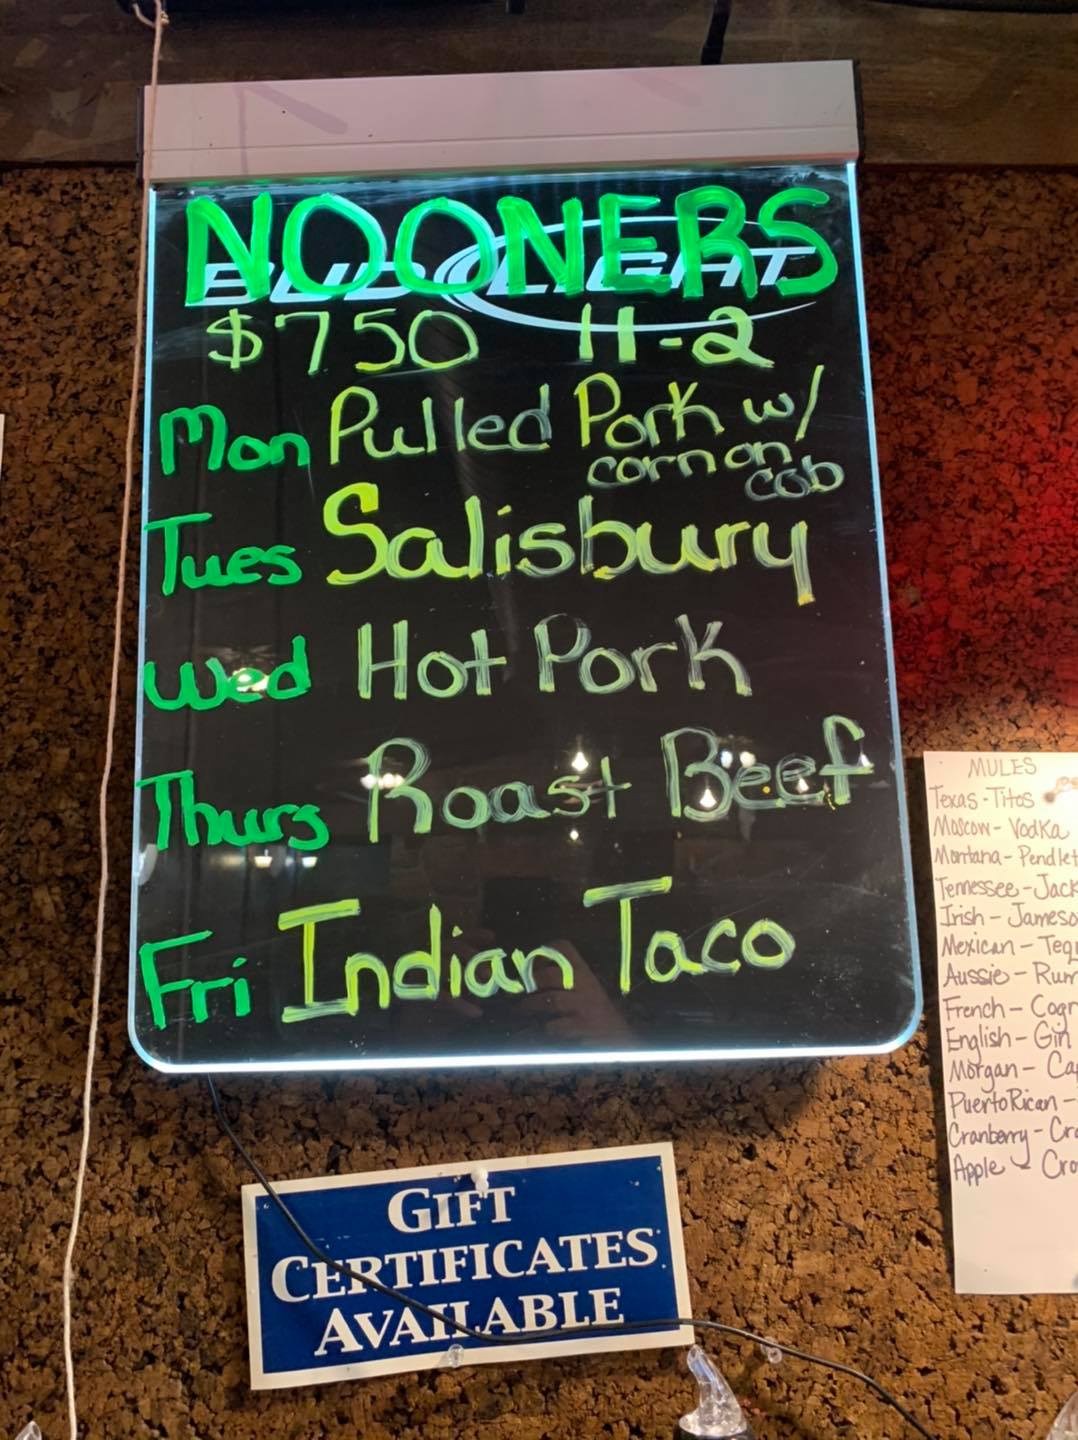 NOONERS
BUD LIGHT
$750 11-2
Mon Pulled Pork w/
corn on
cob
Tues Salisbury
Wed Hot Pork
Thurs Roast Beef
Fri Indian Taco
GIFT
CERTIFICATES
AVAILABLE
MULES
Texas - Titos
Moscow - Vodka
Montana - Pendlet
Tennessee - Jack
Irish - Jameso
Mexican - Teq
Aussie - Rum
French - Cogn
English - Gin
Morgan - Cap
Puerto Rican -
Cranberry - Cra
Apple - Cro